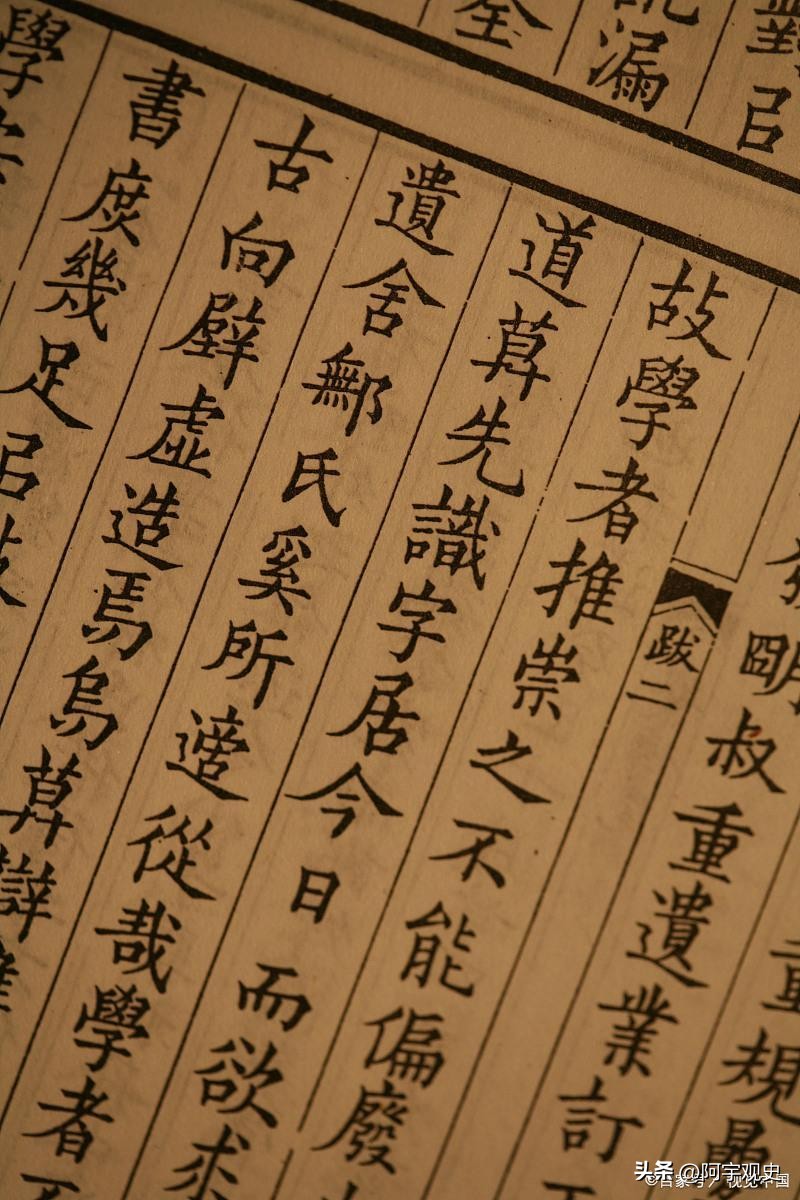 全
故學者推崇之不能偏廢
道莫先識字居今日而欲求
遺舍鄦氏奚所遵從哉學者不
古向壁虛造焉烏莫辯
書庶幾足㠯
學
跋二
朙叔重遺業訂
重規疊
漏
㠯
头条 @阿宇观史